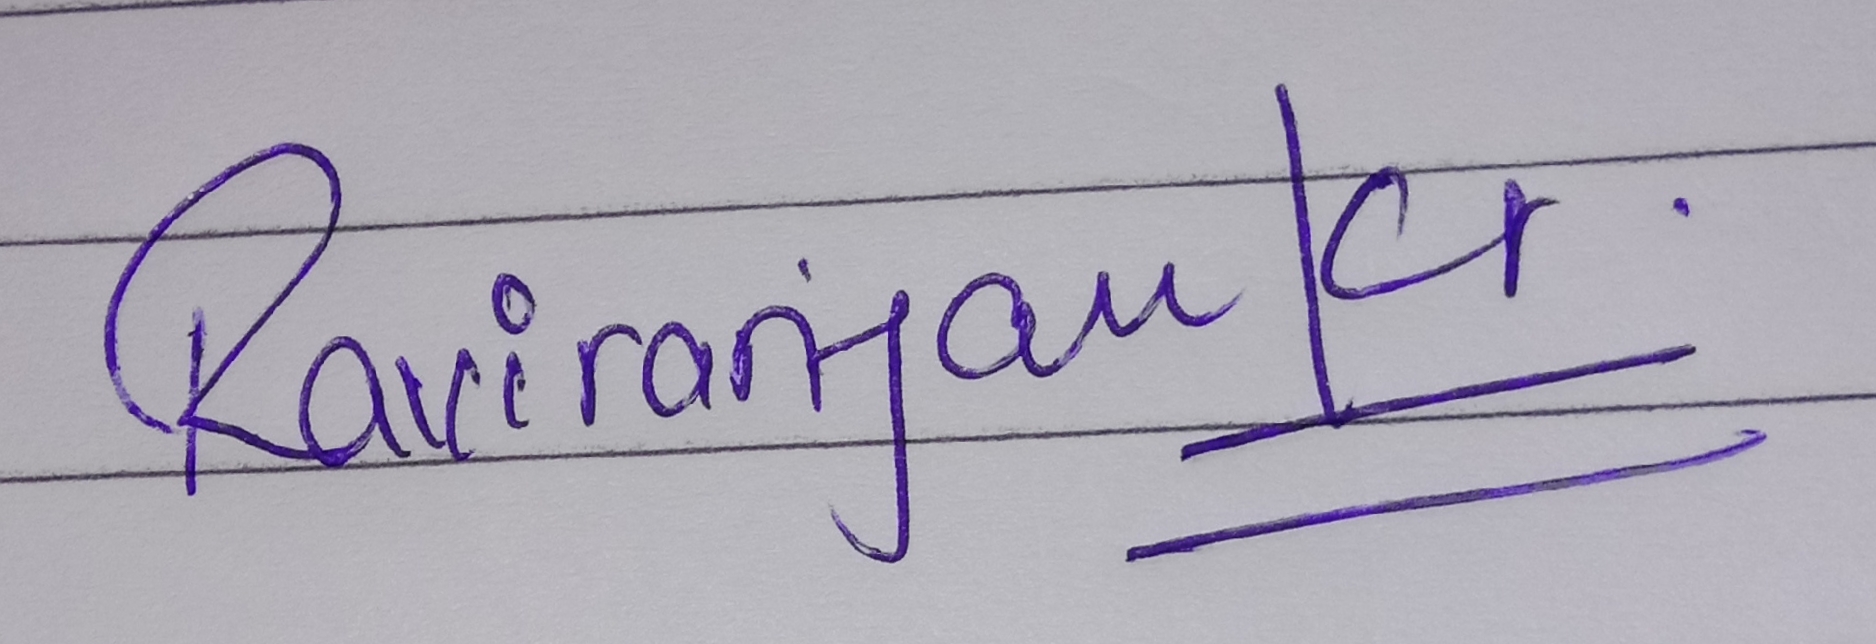 Raviranjan Kr.